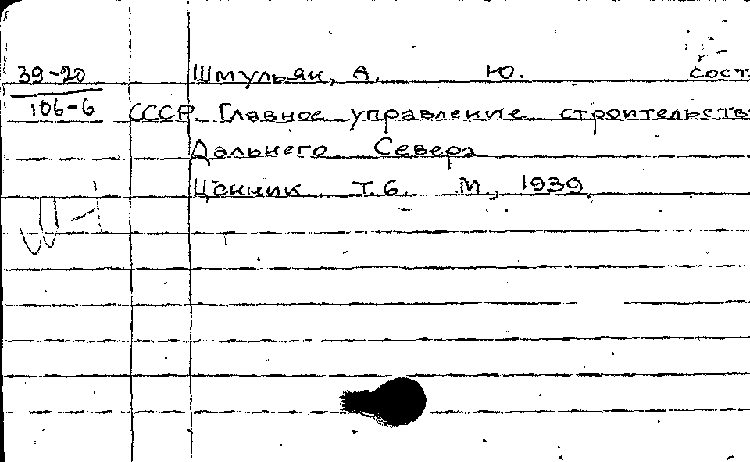 39-20 Шмульян, А. Ю. сост.
106-6 СССР. Главное управление строительства
Дальнего Севера
Ценник. Т. 6. М., 1939.